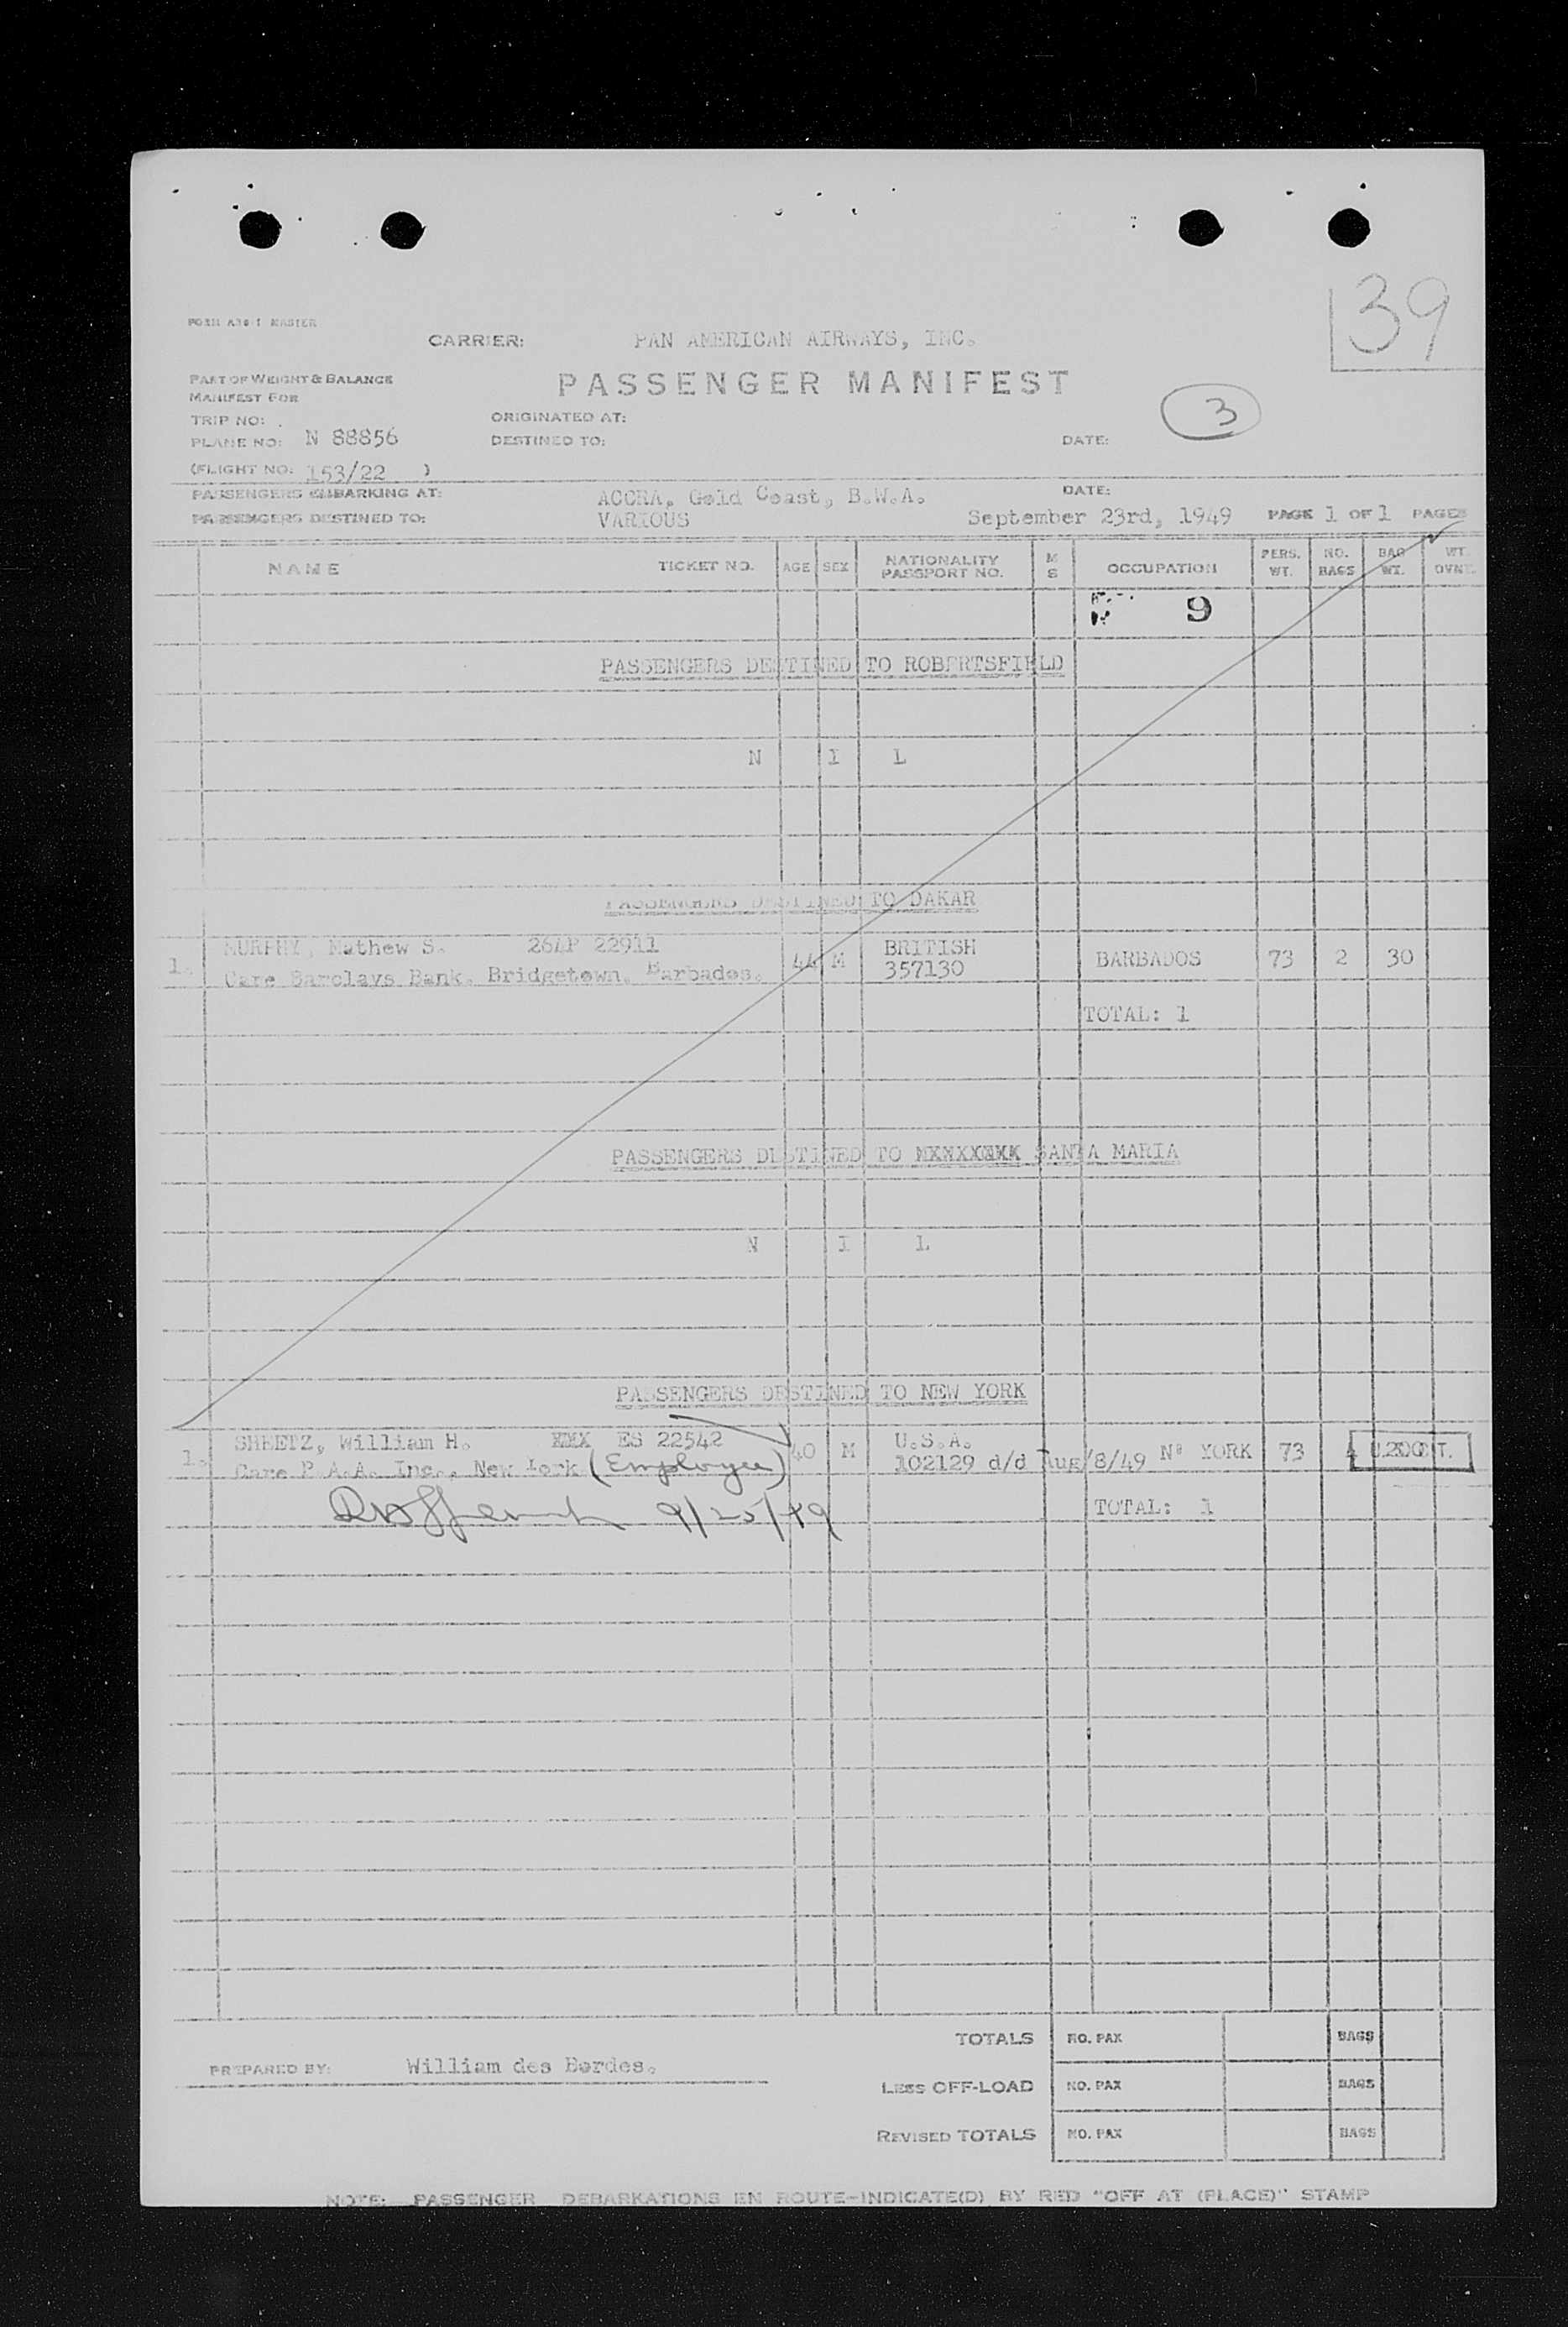 39
CARRIER: PAN AMERICAN AIRWAYS, INC.
PART OF WEIGHT & BALANCE
MANIFEST FOR
PASSENGER MANIFEST
3
TRIP NO: ORIGINATED AT:
PLANE NO: N 88856 DESTINED TO: DATE:
(FLIGHT NO: 153/22 )
PASSENGERS EMBARKING AT: ACCRA, Gold Coast, B.W.A. DATE:
PASSENGERS DESTINED TO: VARIOUS September 23rd, 1949 PAGE 1 OF 1 PAGES
NAME TICKET NO. AGE SEX NATIONALITY PASSPORT NO. M S OCCUPATION PERS. WT. NO. BAGS BAG WT. WT.
9
PASSENGERS DESTINED TO ROBERTSFIELD
N I L
PASSENGERS DESTINED TO DAKAR
1. MURPHY, Mathew S. 26AP 22911 44 M BRITISH BARBADOS 73 2 30
Care Barclays Bank, Bridgetown, Barbados. 357130
TOTAL: 1
PASSENGERS DESTINED TO SANTA MARIA
N I L
PASSENGERS DESTINED TO NEW YORK
1. SHEETZ, William H. ES 22542 40 M U.S.A. YORK 73
Care P.A.A. Inc., New York (Employee) 102129 d/d Aug/8/49
9/25/49 TOTAL: 1
TOTALS NO. PAX BAGS
PREPARED BY: William des Bordes.
LESS OFF-LOAD NO. PAX BAGS
REVISED TOTALS NO. PAX BAGS
NOTE: PASSENGER DEBARKATIONS EN ROUTE-INDICATE(D) BY RED "OFF AT (PLACE)" STAMP